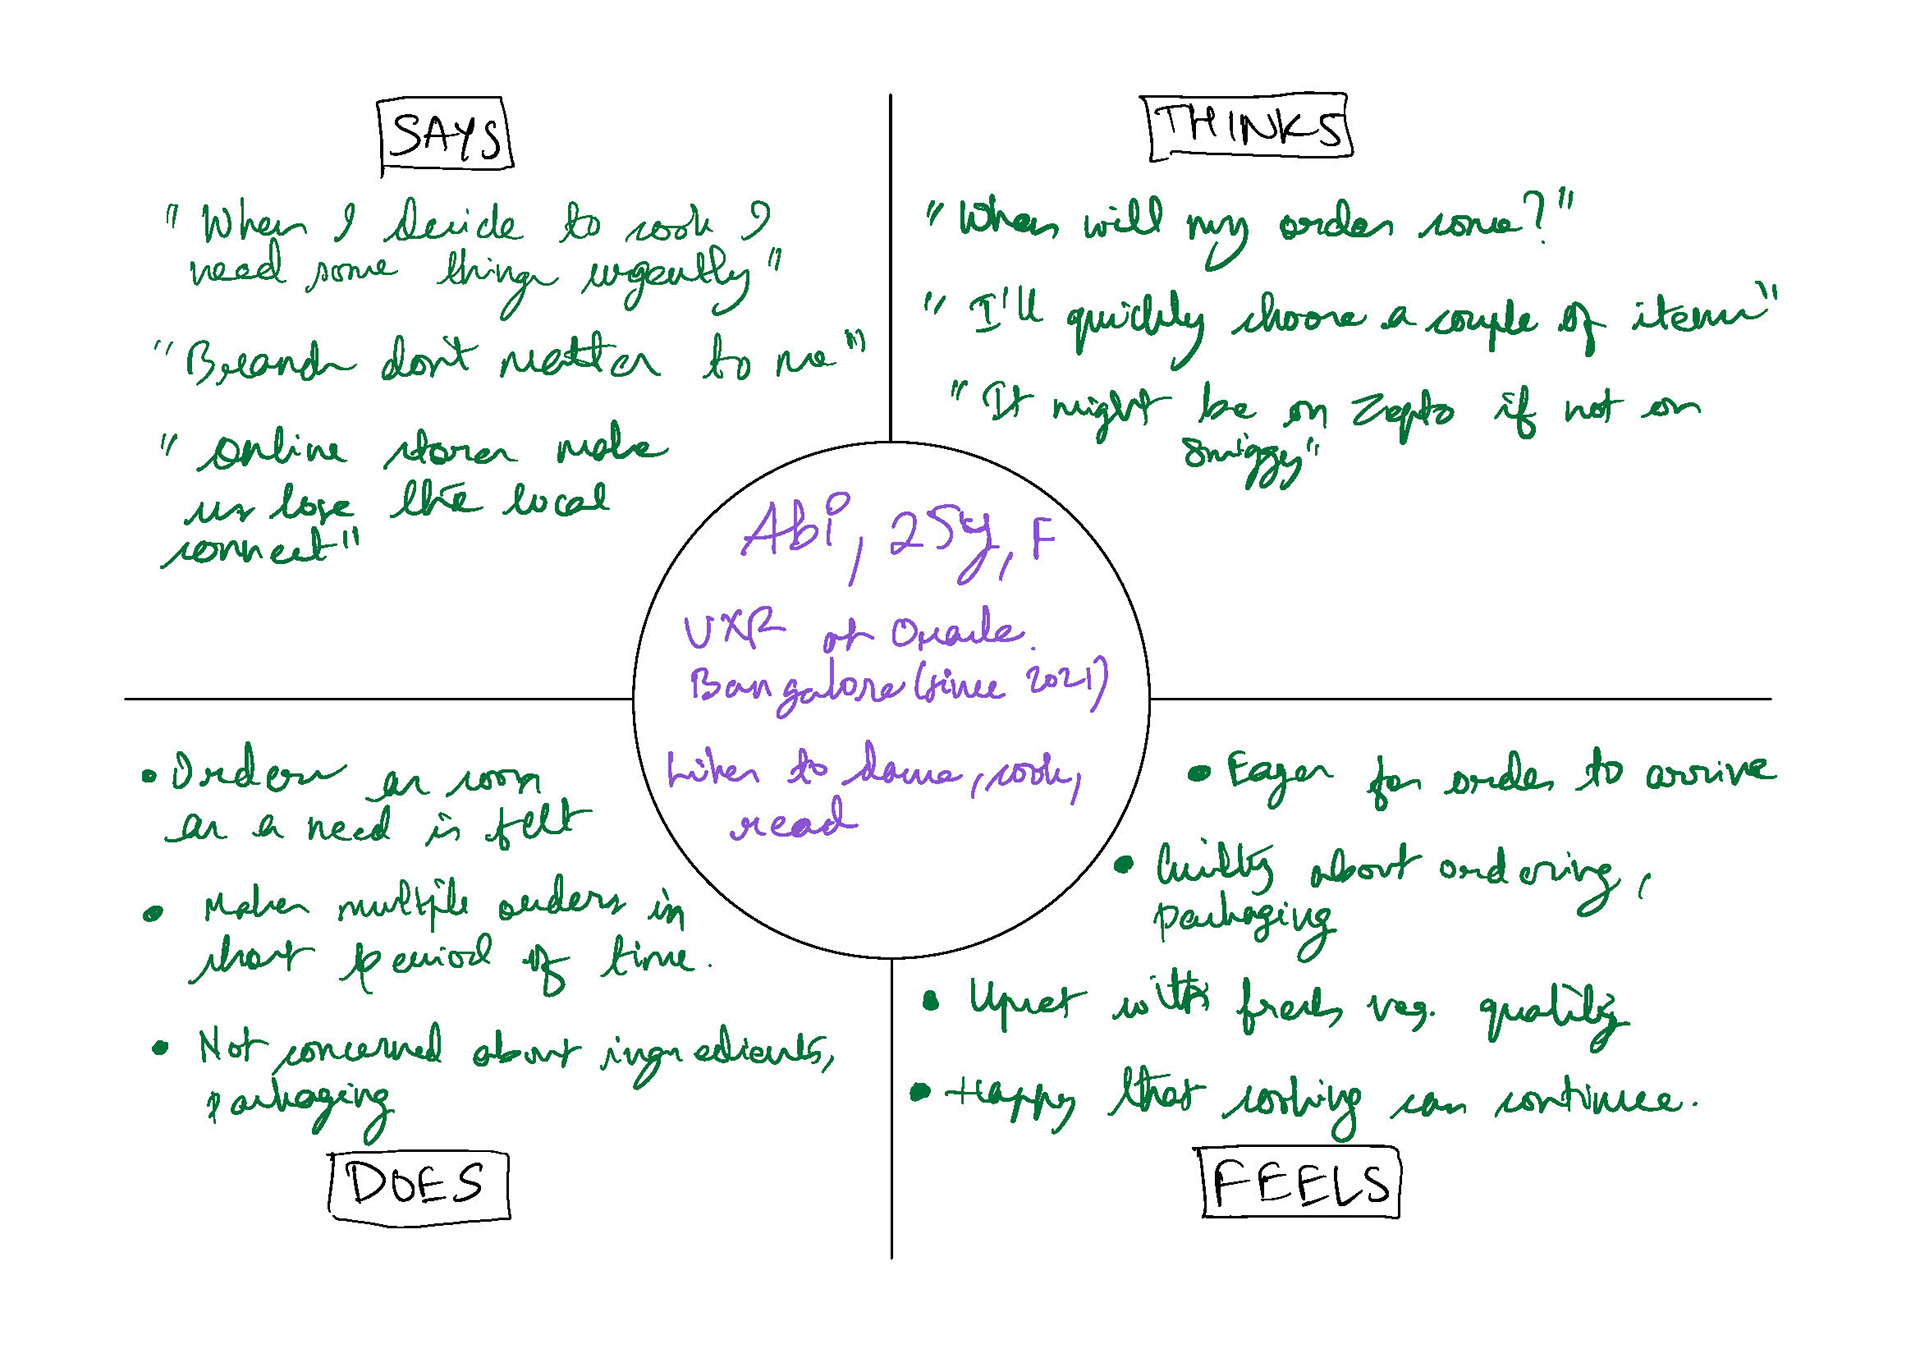 SAYS
"When I decide to cook I
need some things urgently"
"Brands don't matter to me"
"Online stores make
us lose the local
connect"
THINKS
"When will my order come?"
"I'll quickly choose a couple of items"
"It might be on Zepto if not on
Swiggy"
Abi, 25y, F
UXR at Oracle.
Bangalore (since 2021)
Likes to dance, cook,
read
• Orders as soon
as a need is felt
• Makes multiple orders in
short period of time.
• Not concerned about ingredients,
packaging
DOES
• Eager for order to arrive
• Guilty about ordering,
packaging
• Upset with fresh veg. quality
• Happy that cooking can continue.
FEELS